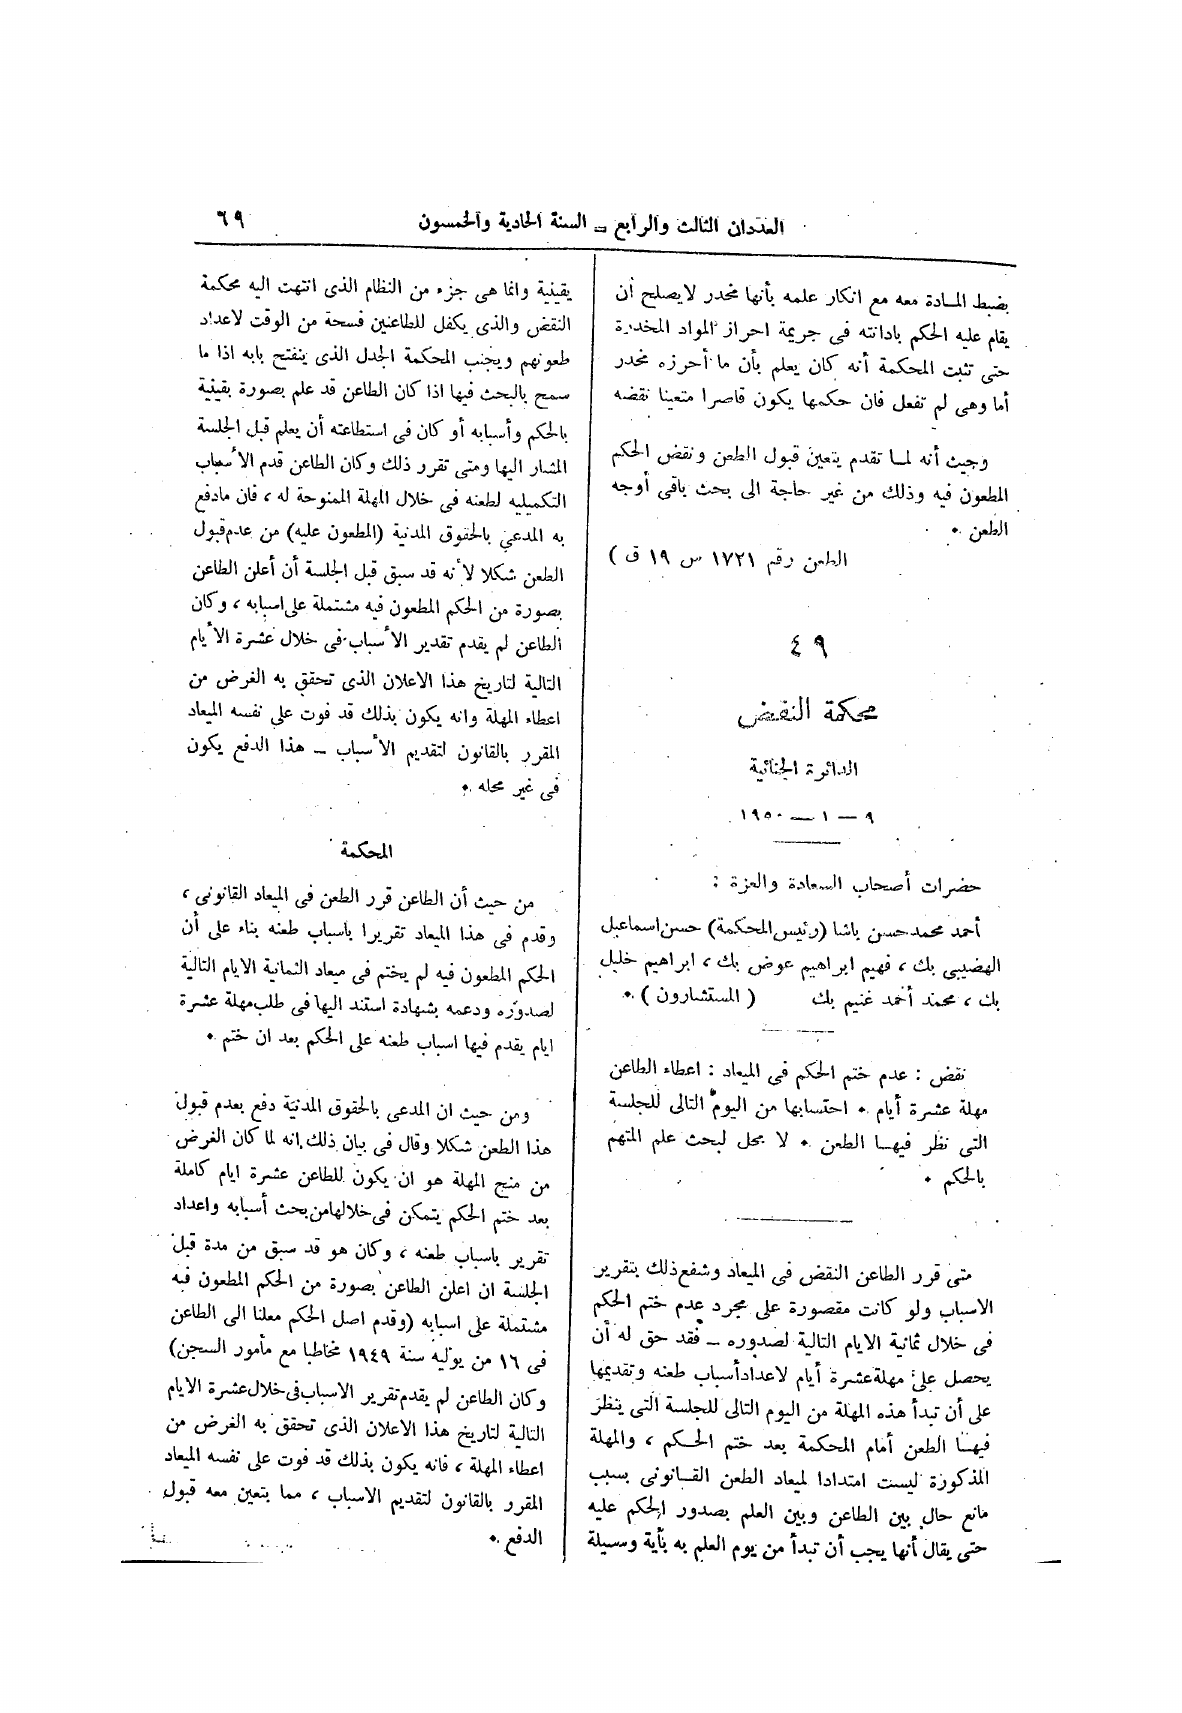 العددان الثالث والرابع – السنة الحادية والخمسون
٦٩
بضبط المادة معه مع انكار علمه بأنها مخدر لا يصلح أن
يقام عليه الحكم بادانته فى جريمة احراز المواد المخدرة
حتى تثبت المحكمة أنه كان يعلم بأن ما أحرزه مخدر
أما وهى لم تفعل فان حكمها يكون قاصرا متعينا نقضه
وحيث أنه لما تقدم يتعين قبول الطعن ونقض الحكم
المطعون فيه وذلك من غير حاجة الى بحث باقى أوجه
الطعن .
الطعن رقم ١٧٢١ س ١٩ ق )
٤٩
محكمة النقض
الدائرة الجنائية
٩ – ١ – ١٩٥٠
حضرات أصحاب السعادة والعزة :
أحمد محمد حسن باشا (رئيس المحكمة) حسن اسماعيل
الهضيبى بك ، فهيم ابراهيم عوض بك ، ابراهيم خليل
بك ، محمد أحمد غنيم بك ( المستشارون ) .
نقض : عدم ختم الحكم فى الميعاد : اعطاء الطاعن
مهلة عشرة أيام . احتسابها من اليوم التالى للجلسة
التى نظر فيها الطعن . لا محل لبحث علم المتهم
بالحكم .
متى قرر الطاعن النقض فى الميعاد وشفع ذلك بتقرير
الاسباب ولو كانت مقصورة على مجرد عدم ختم الحكم
فى خلال ثمانية الايام التالية لصدوره – فقد حق له أن
يحصل على مهلة عشرة أيام لاعداد أسباب طعنه وتقديمها
على أن تبدأ هذه المهلة من اليوم التالى للجلسة التى ينظر
فيها الطعن أمام المحكمة بعد ختم الحكم ، والمهلة
المذكورة ليست امتدادا لميعاد الطعن القانونى بسبب
مانع حال بين الطاعن وبين العلم بصدور الحكم عليه
حتى يقال أنها يجب أن تبدأ من يوم العلم به بأية وسيلة
يقينية وانما هى جزء من النظام الذى انتهت اليه محكمة
النقض والذى يكفل للطاعنين فسحة من الوقت لاعداد
طعونهم ويجنب المحكمة الجدل الذى ينفتح بابه اذا ما
سمح بالبحث فيها اذا كان الطاعن قد علم بصورة يقينية
بالحكم وأسبابه أو كان فى استطاعته أن يعلم قبل الجلسة
المشار اليها ومتى تقرر ذلك وكان الطاعن قدم الأسباب
التكميليه لطعنه فى خلال المهلة الممنوحة له ، فان مادفع
به المدعى بالحقوق المدنية (المطعون عليه) من عدم قبول
الطعن شكلا لأنه قد سبق قبل الجلسة أن أعلن الطاعن
بصورة من الحكم المطعون فيه مشتملة على اسبابه ، وكان
الطاعن لم يقدم تقدير الأسباب فى خلال عشرة الأيام
التالية لتاريخ هذا الاعلان الذى تحقق به الغرض من
اعطاء المهلة وانه يكون بذلك قد فوت على نفسه الميعاد
المقرر بالقانون لتقديم الأسباب – هذا الدفع يكون
فى غير محله .
المحكمة
من حيث أن الطاعن قرر الطعن فى الميعاد القانونى ،
وقدم فى هذا الميعاد تقريرا باسباب طعنه بناء على أن
الحكم المطعون فيه لم يختم فى ميعاد الثمانية الايام التالية
لصدوره ودعمه بشهادة استند اليها فى طلب مهلة عشرة
ايام يقدم فيها اسباب طعنه على الحكم بعد ان ختم .
ومن حيث ان المدعى بالحقوق المدنية دفع بعدم قبول
هذا الطعن شكلا وقال فى بيان ذلك انه لما كان الغرض
من منح المهلة هو ان يكون للطاعن عشرة ايام كاملة
بعد ختم الحكم يتمكن فى خلالها من بحث أسبابه واعداد
تقرير باسباب طعنه ، وكان هو قد سبق من مدة قبل
الجلسة ان اعلن الطاعن بصورة من الحكم المطعون فيه
مشتملة على اسبابه (وقدم اصل الحكم معلنا الى الطاعن
فى ١٦ من يوليه سنة ١٩٤٩ مخاطبا مع مأمور السجن)
وكان الطاعن لم يقدم تقرير الاسباب فى خلال عشرة الايام
التالية لتاريخ هذا الاعلان الذى تحقق به الغرض من
اعطاء المهلة ، فانه يكون بذلك قد فوت على نفسه الميعاد
المقرر بالقانون لتقديم الاسباب ، مما يتعين معه قبول
الدفع .